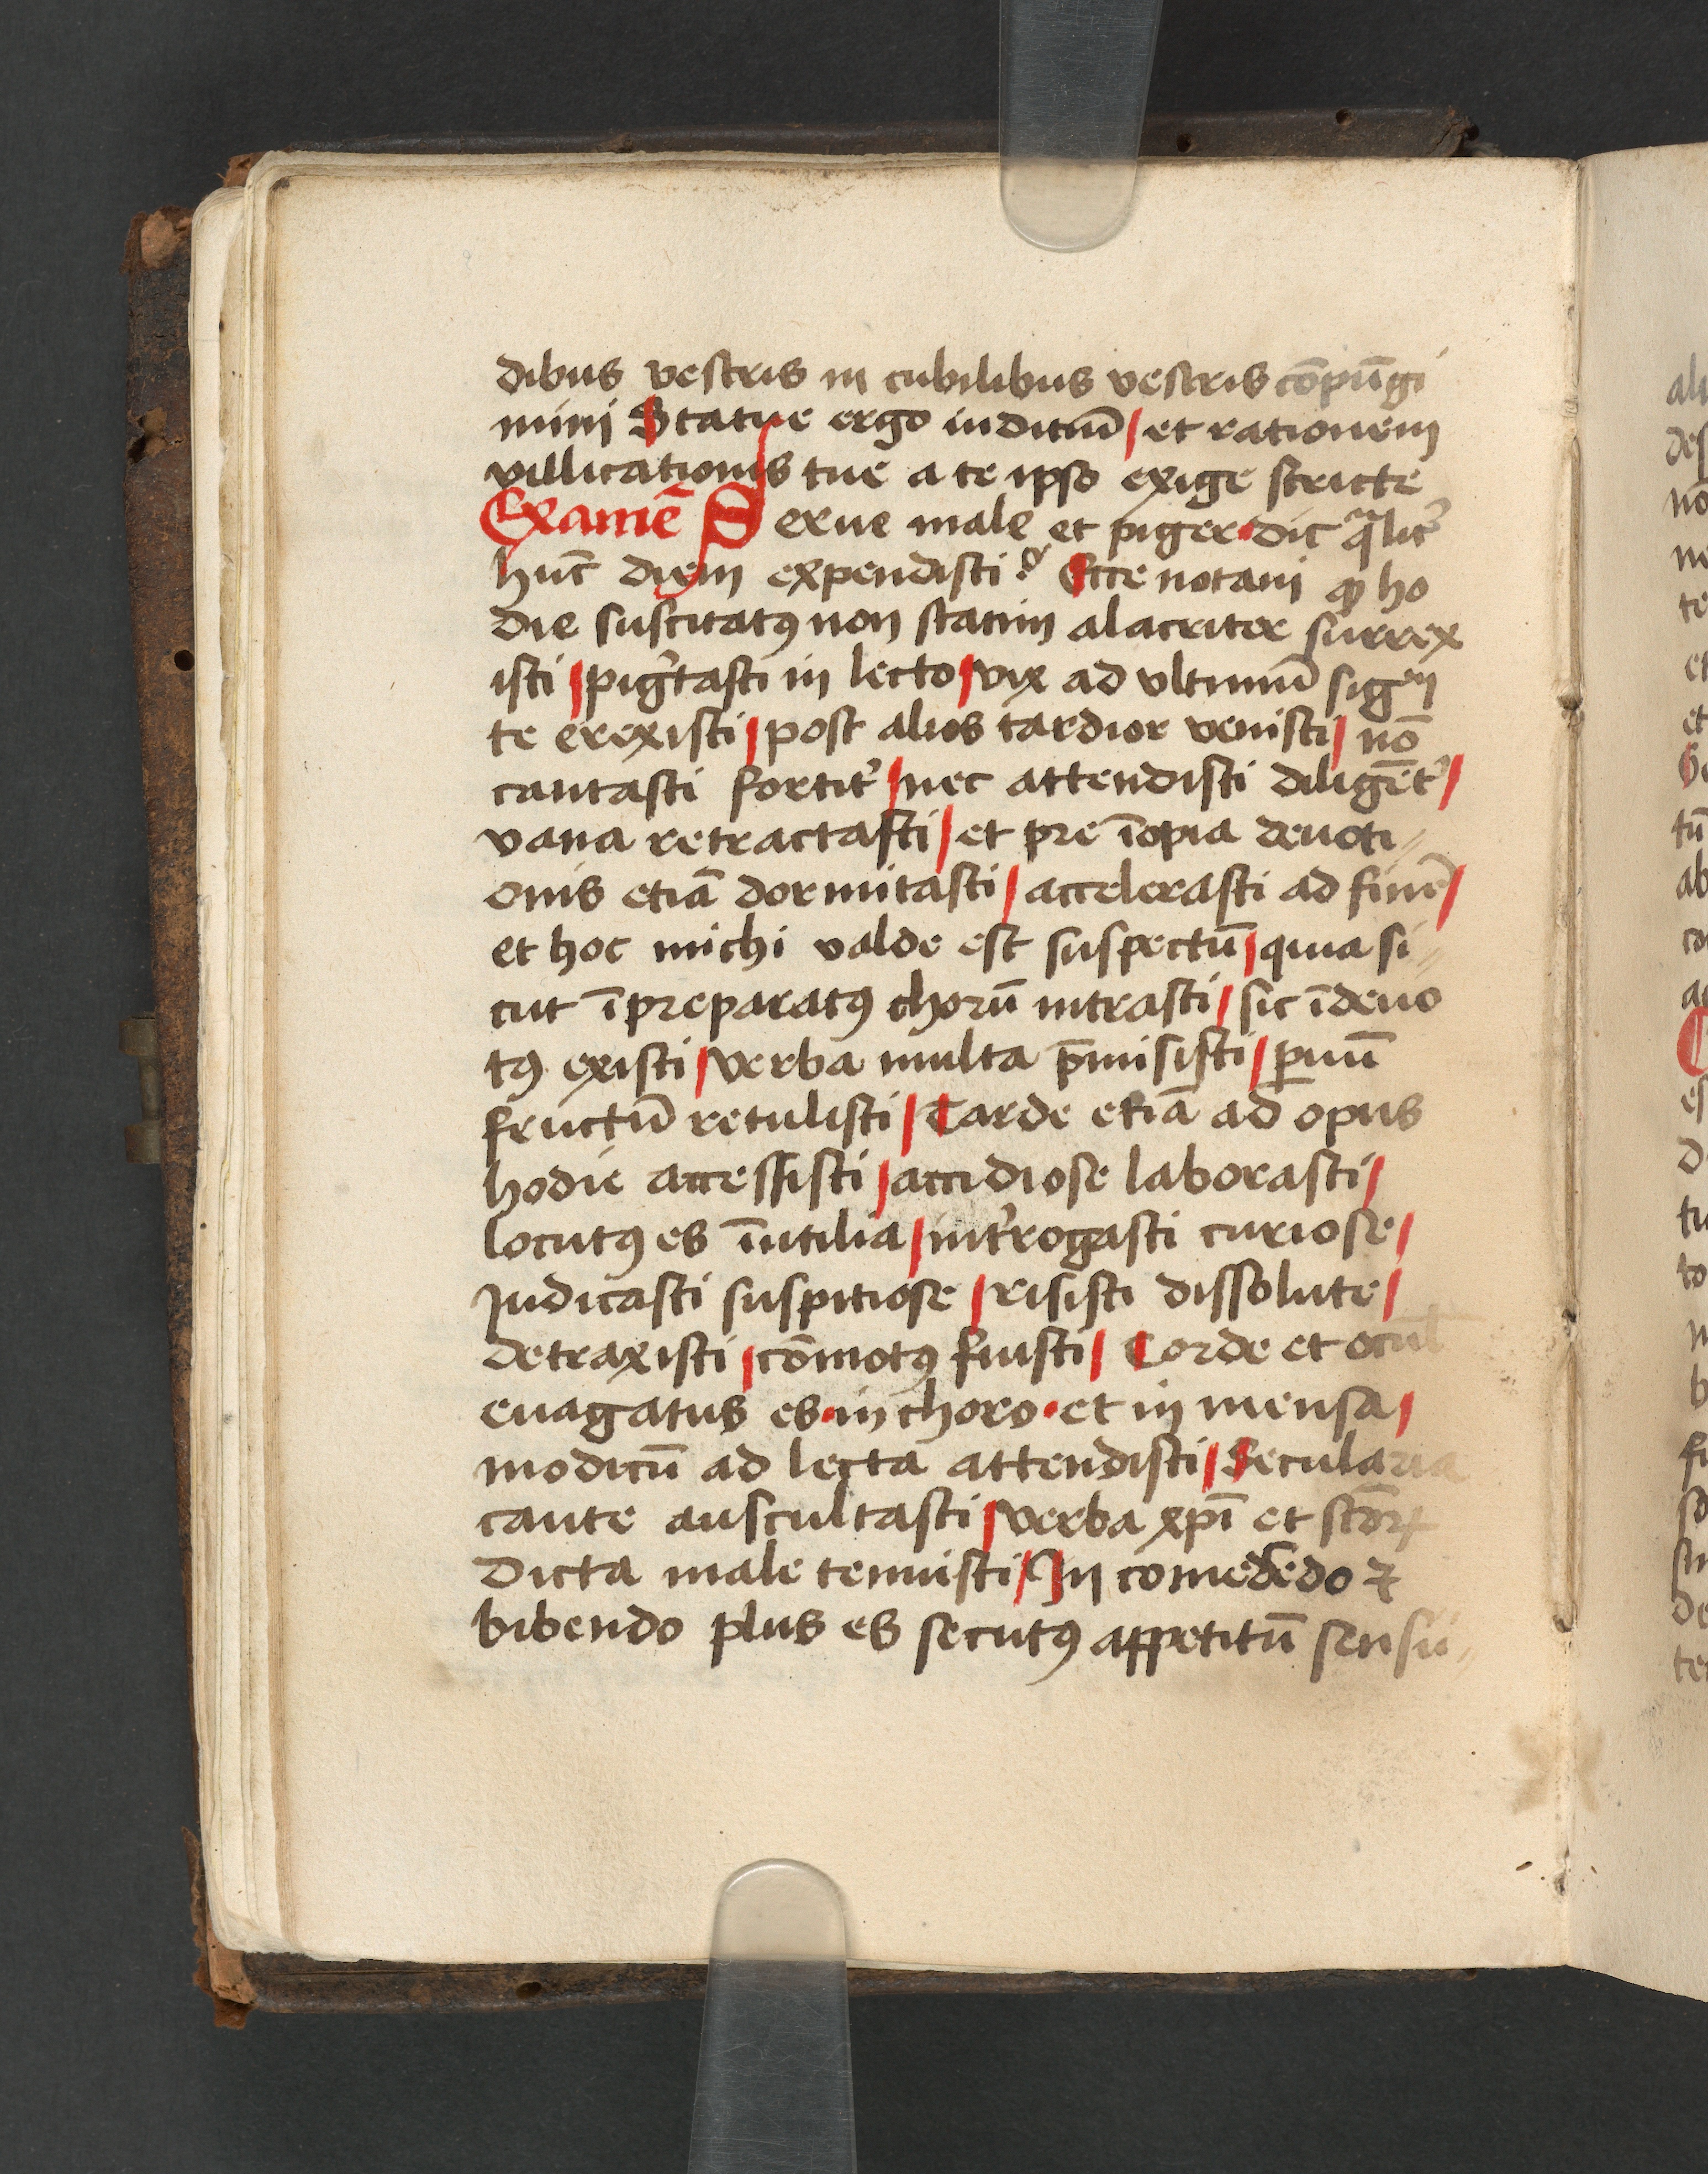 dibus vestris in cubilibus vestris co̅pu̅gi
mini Statue ergo iuditiu̅ / et rationem
villicationis tue a te ipso exige stricte
Exame̅ Serue male et piger · dic qͣlit᷑
hūc diem expendisti? Ecce notaui ꝙ ho
die suscitatꝰ non statim alacriter surrex
isti / pig᷑tasti in lecto / vix ad vltimu̅ sig
te erexisti / post alios tardior venisti / no̅
cantasti fortit᷑ / nec attendisti dilige̅t᷑ /
vana retractasti / et pre i̅opia deuoti⸗
onis etia̅ dormitasti / accelerasti ad fine̅ /
et hoc michi valde est suspectu̅ / quia si⸗
cut i̅preparatꝰ choru̅ intrasti / sic i̅deuo
tꝰ existi / verba multa p̅misisti / ꝑuu̅
fructu̅ retulisti / Tarde etia̅ ad opus
hodie accessisti / accidiose laborasti /
locutꝰ es i̅utilia / int᷑rogasti curiose /
Judicasti suspitiose / risisti dissolute /
detraxisti / co̅motꝰ fuisti / Corde et ocul̅
euagatus es · in choro · et in mensa /
modicu̅ ad lecta attendisti / Secularia
caute auscultasti / verba xp̅i et sc̅oꝝ
dicta male tenuisti / In comede̅do ⁊
bibendo plus es secutꝰ appetitu̅ sensu⸗